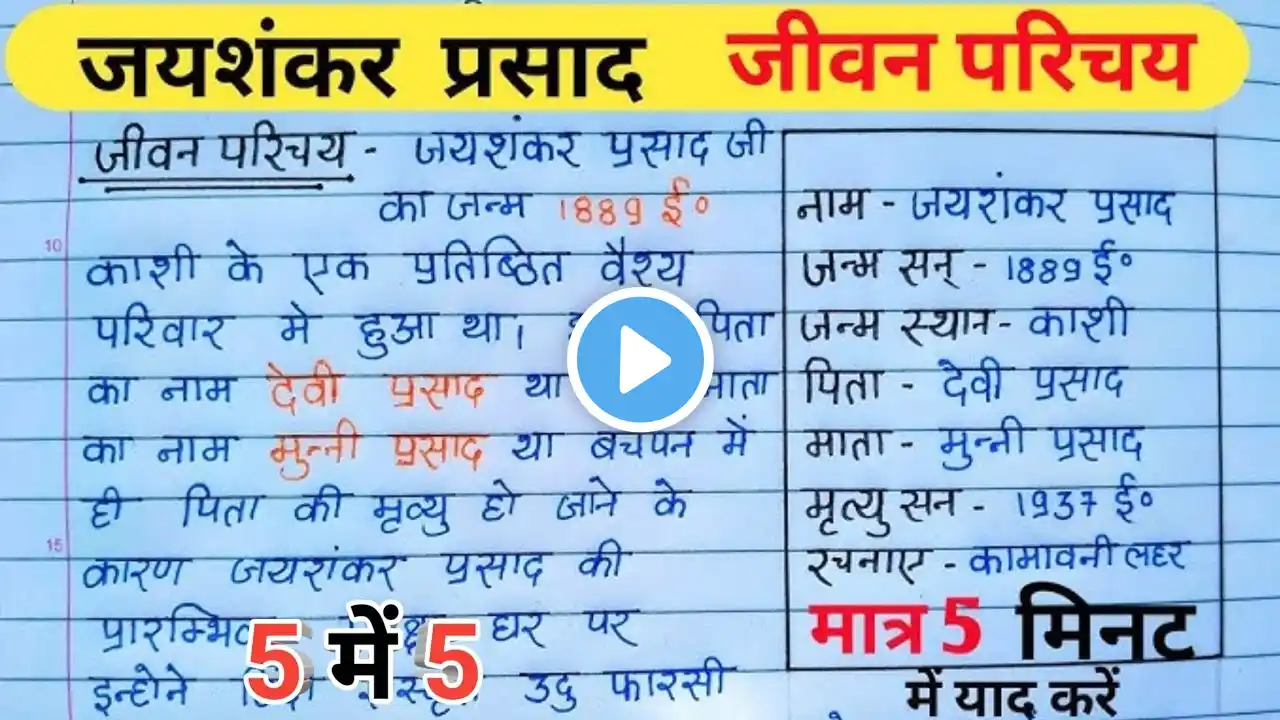 जयशंकर प्रसाद जीवन परिचय
जीवन परिचय - जयशंकर प्रसाद जी
का जन्म 1889 ई०
काशी के एक प्रतिष्ठित वैश्य
परिवार मे हुआ था। पिता
का नाम देवी प्रसाद था माता
का नाम मुन्नी प्रसाद था बचपन में
ही पिता की मृत्यु हो जाने के
कारण जयशंकर प्रसाद की
घर पर
इन्होने उदु फारसी
10
15
5 में 5
नाम - जयशंकर प्रसाद
जन्म सन् - 1889 ई०
जन्म स्थान - काशी
पिता - देवी प्रसाद
माता - मुन्नी प्रसाद
मृत्यु सन - 1937 ई०
रचनाए - कामावनी लहर
मात्र 5 मिनट
में याद करें